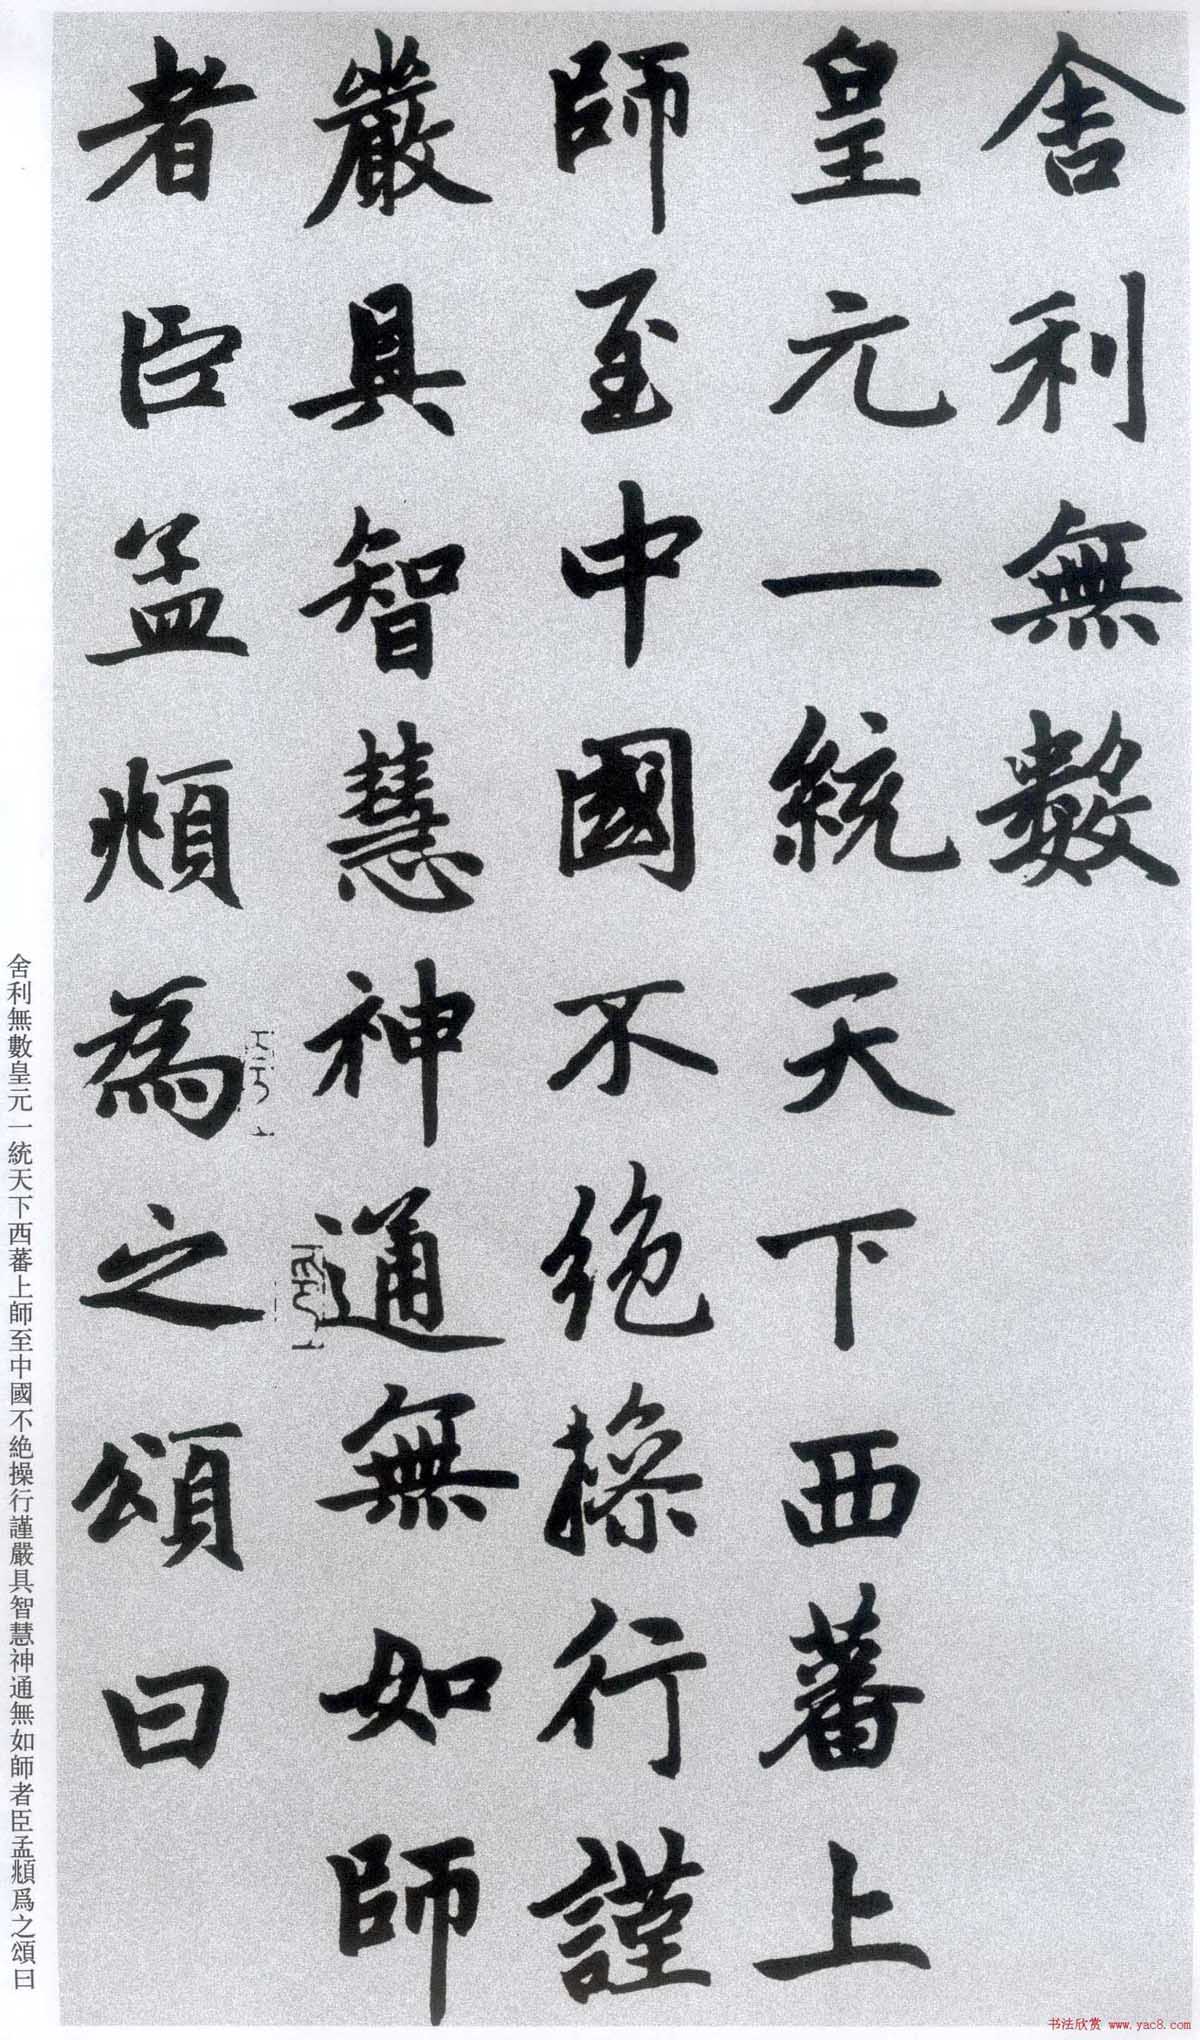 舍利無數
皇元一統天下西蕃上
師至中國不絶操行謹
嚴具智慧神通無如師
者臣孟頫為之頌曰
舍利無數皇元一統天下西蕃上師至中國不絶操行謹嚴具智慧神通無如師者臣孟頫爲之頌曰
书法欣赏 www.yac8.com